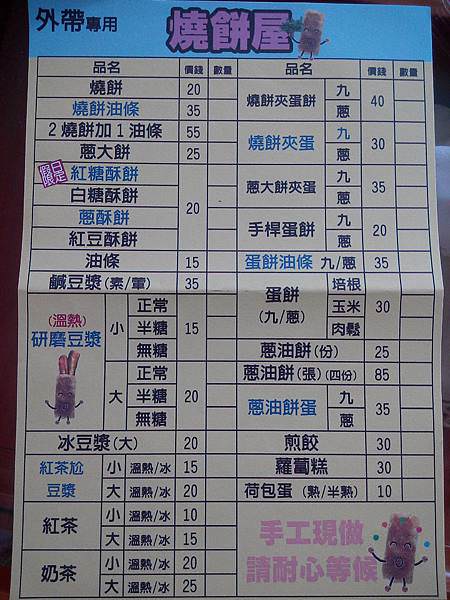 外帶專用
燒餅屋
品名 價錢 數量
燒餅 20
燒餅油條 35
2燒餅加1油條 55
蔥大餅 25
假日限定
紅糖酥餅
白糖酥餅
蔥酥餅
紅豆酥餅
20
油條 15
鹹豆漿(素/葷) 35
(溫熱)
研磨豆漿
小 正常 半糖 無糖 15
大 正常 半糖 無糖 20
冰豆漿(大) 20
紅茶尬豆漿
小 溫熱/冰 15
大 溫熱/冰 20
紅茶
小 溫熱/冰 10
大 溫熱/冰 15
奶茶
小 溫熱/冰 20
大 溫熱/冰 25
品名 價錢 數量
燒餅夾蛋餅 九 蔥 40
燒餅夾蛋 九 蔥 30
蔥大餅夾蛋 九 蔥 35
手桿蛋餅 九 蔥 20
蛋餅油條 九/蔥 35
蛋餅
(九/蔥)
培根 玉米 肉鬆 30
蔥油餅(份) 25
蔥油餅(張)(四份) 85
蔥油餅蛋 九 蔥 35
煎餃 30
蘿蔔糕 30
荷包蛋 (熟/半熟) 10
手工現做
請耐心等候